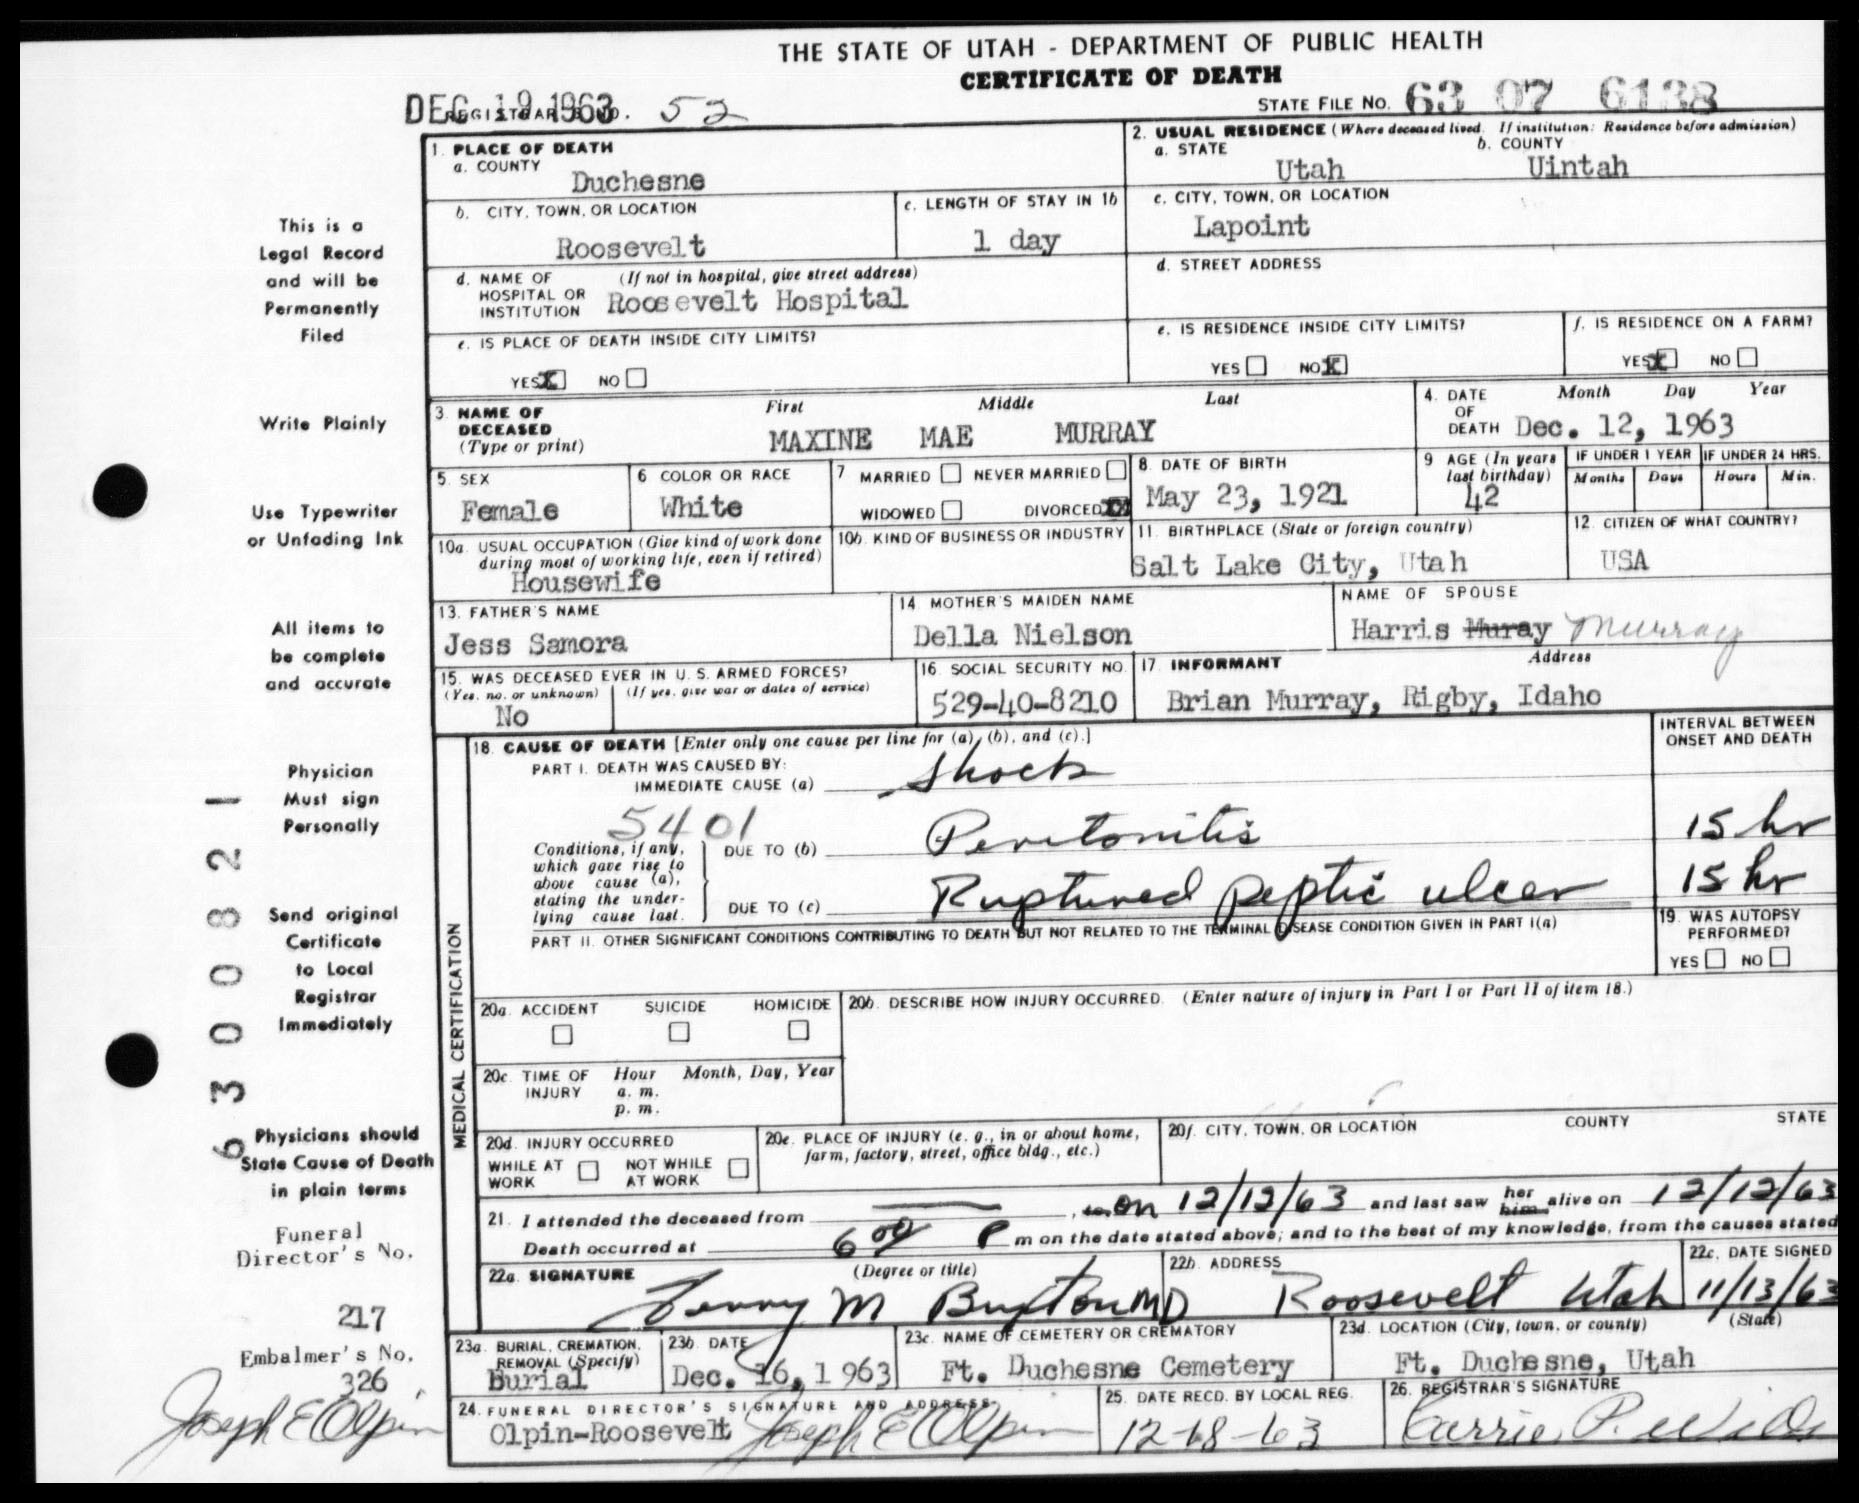 THE STATE OF UTAH - DEPARTMENT OF PUBLIC HEALTH
CERTIFICATE OF DEATH
DEC 19 1963
REGISTRAR'S NO. 52
STATE FILE NO. 63 07 6138
This is a
Legal Record
and will be
Permanently
Filed
Write Plainly
Use Typewriter
or Unfading Ink
All items to
be complete
and accurate
Physician
Must sign
Personally
Send original
Certificate
to Local
Registrar
Immediately
Physicians should
State Cause of Death
in plain terms
Funeral
Director's No.
217
Embalmer's No.
326
Joseph E Olpin
63 00821
1. PLACE OF DEATH
a. COUNTY
Duchesne
b. CITY, TOWN, OR LOCATION
Roosevelt
c. LENGTH OF STAY IN 1b
1 day
d. NAME OF HOSPITAL OR INSTITUTION (If not in hospital, give street address)
Roosevelt Hospital
e. IS PLACE OF DEATH INSIDE CITY LIMITS?
YES X NO
2. USUAL RESIDENCE (Where deceased lived. If institution: Residence before admission)
a. STATE
Utah
b. COUNTY
Uintah
c. CITY, TOWN, OR LOCATION
Lapoint
d. STREET ADDRESS
e. IS RESIDENCE INSIDE CITY LIMITS?
YES NO X
f. IS RESIDENCE ON A FARM?
YES X NO
3. NAME OF DECEASED (Type or print)
First Middle Last
MAXINE MAE MURRAY
4. DATE OF DEATH Month Day Year
Dec. 12, 1963
5. SEX
Female
6 COLOR OR RACE
White
7 MARRIED NEVER MARRIED
WIDOWED DIVORCED X
8. DATE OF BIRTH
May 23, 1921
9 AGE (In years last birthday)
42
IF UNDER 1 YEAR
Months Days
IF UNDER 24 HRS.
Hours Min.
10a. USUAL OCCUPATION (Give kind of work done during most of working life, even if retired)
Housewife
10b. KIND OF BUSINESS OR INDUSTRY
11. BIRTHPLACE (State or foreign country)
Salt Lake City, Utah
12. CITIZEN OF WHAT COUNTRY?
USA
13. FATHER'S NAME
Jess Samora
14 MOTHER'S MAIDEN NAME
Della Nielson
NAME OF SPOUSE
Harris Muray Murray
15. WAS DECEASED EVER IN U. S. ARMED FORCES?
(Yes, no, or unknown) (If yes, give war or dates of service)
No
16. SOCIAL SECURITY NO.
529-40-8210
17. INFORMANT Address
Brian Murray, Rigby, Idaho
MEDICAL CERTIFICATION
18. CAUSE OF DEATH [Enter only one cause per line for (a), (b), and (c).]
INTERVAL BETWEEN ONSET AND DEATH
PART I. DEATH WAS CAUSED BY:
IMMEDIATE CAUSE (a) Shock
5401
Conditions, if any, which gave rise to above cause (a), stating the underlying cause last.
DUE TO (b) Peritonitis 15 hr
DUE TO (c) Ruptured peptic ulcer 15 hr
PART II. OTHER SIGNIFICANT CONDITIONS CONTRIBUTING TO DEATH BUT NOT RELATED TO THE TERMINAL DISEASE CONDITION GIVEN IN PART I(a)
19. WAS AUTOPSY PERFORMED?
YES NO
20a. ACCIDENT SUICIDE HOMICIDE
20b. DESCRIBE HOW INJURY OCCURRED. (Enter nature of injury in Part I or Part II of item 18.)
20c. TIME OF INJURY Hour Month, Day, Year
a. m.
p. m.
20d. INJURY OCCURRED
WHILE AT WORK NOT WHILE AT WORK
20e. PLACE OF INJURY (e. g., in or about home, farm, factory, street, office bldg., etc.)
20f. CITY, TOWN, OR LOCATION COUNTY STATE
21. I attended the deceased from , to on 12/12/63 and last saw her him alive on 12/12/63
Death occurred at 6 00 P m on the date stated above; and to the best of my knowledge, from the causes stated
22a. SIGNATURE (Degree or title)
M Buxton MD
22b. ADDRESS
Roosevelt Utah
22c. DATE SIGNED
11/13/63
23a. BURIAL, CREMATION, REMOVAL (Specify)
Burial
23b. DATE
Dec. 16, 1963
23c. NAME OF CEMETERY OR CREMATORY
Ft. Duchesne Cemetery
23d. LOCATION (City, town, or county) (State)
Ft. Duchesne, Utah
24. FUNERAL DIRECTOR'S SIGNATURE AND ADDRESS
Olpin-Roosevelt Joseph E Olpin
25. DATE RECD. BY LOCAL REG.
12-18-63
26. REGISTRAR'S SIGNATURE
Carrie P.